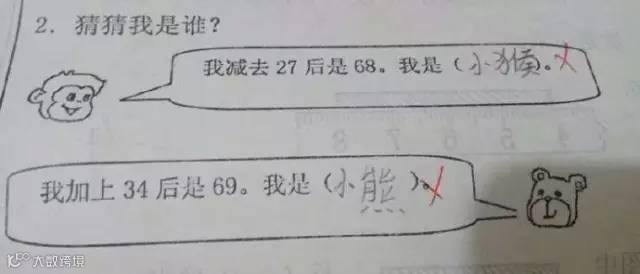 2．猜猜我是谁？
我减去 27 后是 68。我是（小猴）。
我加上 34 后是 69。我是（小熊）。
大数跨境